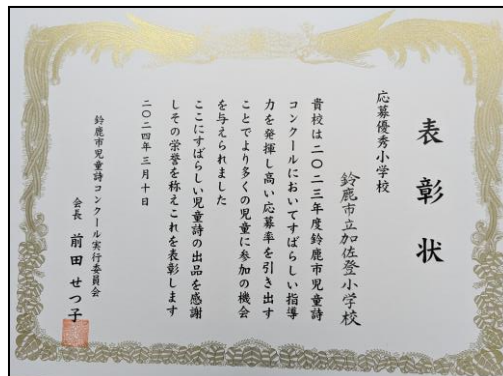 表彰状
応募優秀小学校
鈴鹿市立加佐登小学校
貴校は二〇二三年度鈴鹿市児童詩
コンクールにおいてすばらしい指導
力を発揮し高い応募率を引き出す
ことでより多くの児童に参加の機会
を与えられました
ここにすばらしい児童詩の出品を感謝
しその栄誉を称えこれを表彰します
二〇二四年三月十日
鈴鹿市児童詩コンクール実行委員会
会長 前田せつ子